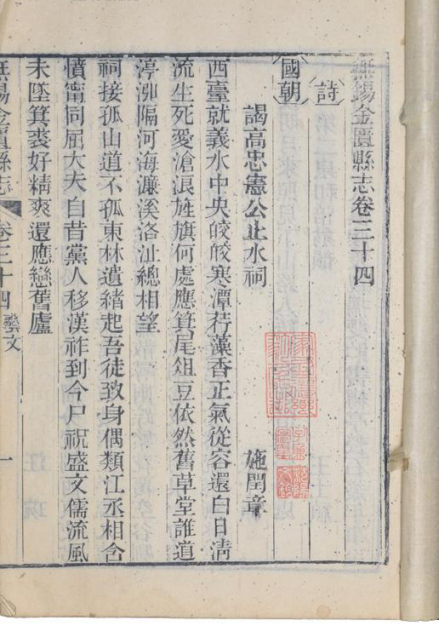 無錫金匱縣志卷三十四
詩
國朝
謁高忠憲公止水祠
施閏章
西臺就義水中央皎皎寒潭荇藻香正氣從容還白日清
流生死愛滄浪旌旗何處應箕尾俎豆依然舊草堂誰道
渟泖隔河海濂溪洛沚總相望
祠接孤山道不孤東林遺緒起吾徒致身偶類江丞相含
憤甯同屈大夫自昔黨人移漢祚到今尸祝盛文儒流風
未墜箕裘好精爽還應戀舊廬
無錫金匱縣志
卷三十四
藝文
一